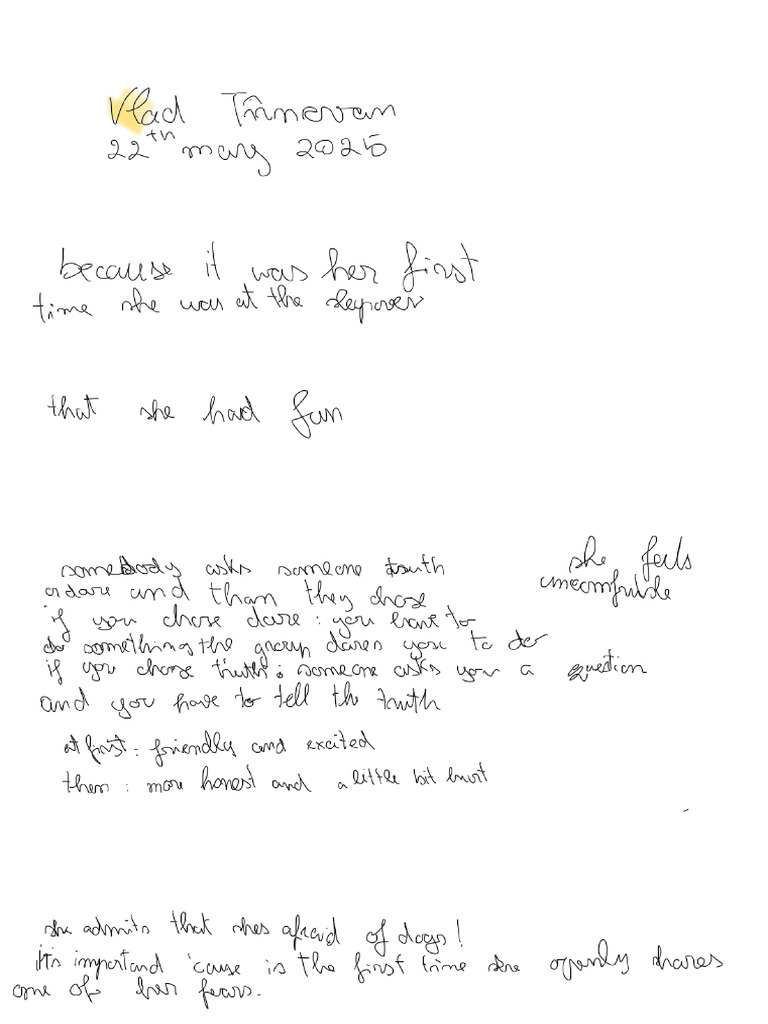 Vlad
22th may 2025
because it was her first
time she was at the slepover
that she had fun
somebody asks someone truth
or dare and than they chose
if you chose dare: you have to
do something the group dares you to do
if you chose truth: someone asks you a question
and you have to tell the truth
she feels
uncomfortable
at first: friendly and excited
then: more honest and a little bit hurt
she admits that shes afraid of dogs!
it's importand 'cause is the first time she openly shares
one of her fears.